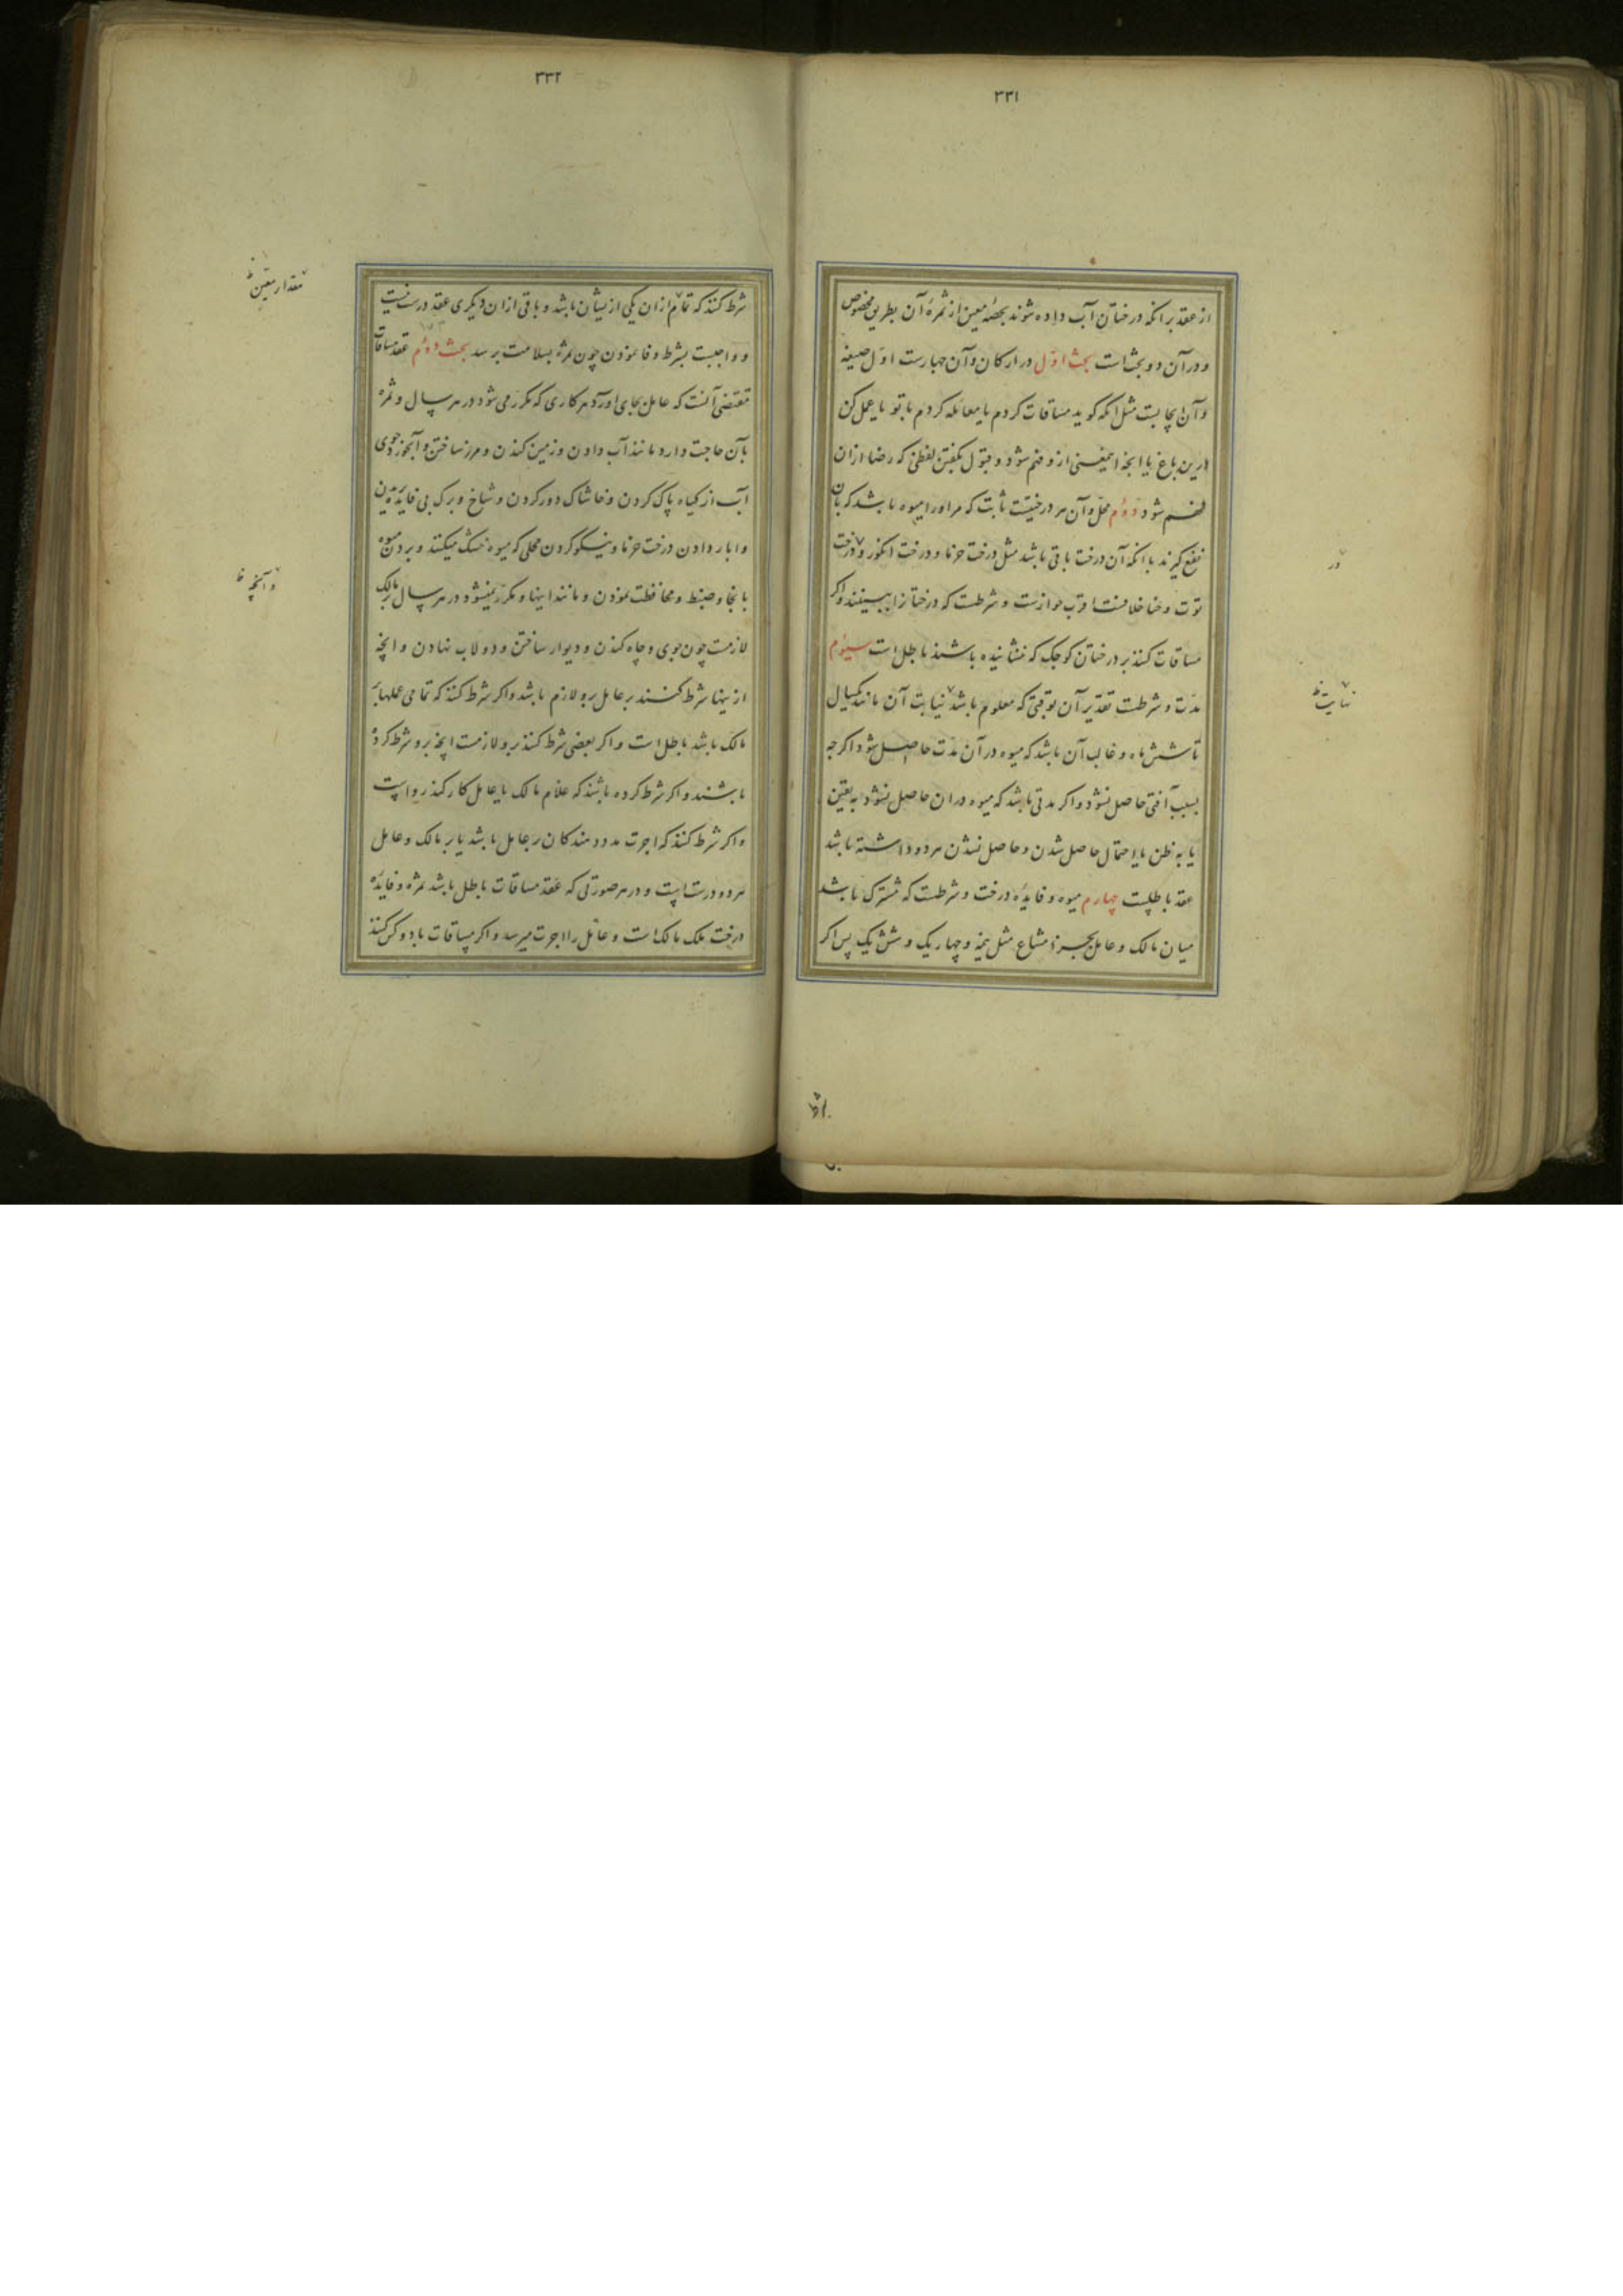 ۳۳۱
از عقد بر انکه درختان آب داده شوند بحصهٔ معین از ثمرهٔ آن بطریق مخصوص
و در آن دو بحث است بحث اول در ارکان و آن چهارست اول صیغه
و آن ایجابست مثل انکه کوید مساقات کردم یا معامله کردم با تو یا عمل کن
درین باغ یا انچه این معنی ازو فهم شود و قبول بکفتن لفظی که رضا ازان
فهم شود دوم محل و آن هر درختیست ثابت که مر اورا میوه باشد که بان
نفع کیرند با انکه آن درخت باقی باشد مثل درخت خرما و درخت انکور و درخت
توت و حنا خلافست اقرب جوازست و شرطست که درختان را ببینند و اکر
مساقات کنند بر درختان کوچک که ننشانیده باشند باطل است سیوم
مدت و شرطست تقدیر آن بوقتی که معلوم باشد نیابت آن مانند یکسال
تا شش ماه و غالب آن باشد که میوه در آن مدت حاصل شود اکر چه
بسبب آفتی حاصل نشود و اکر مدتی باشد که میوه دران حاصل نشود به یقین
یا به ظن یا احتمال حاصل شدن و حاصل نشدن هر دو داشته باشد
عقد باطلست چهارم میوه و فایدهٔ درخت و شرطست که مشترک باشد
میان مالک و عامل بجزء مشاع مثل نیمه و چهار یک و شش یک پس اکر
در
نهایت ظ
۳۳۲
شرط کنند که تمام ازان یکی ازیشان باشد و باقی ازان دیکری عقد درست نیست
و واجبست بشرط وفا نمودن چون ثمره بسلامت برسد بحث دوم عقد مساقات
مقتضی آنست که عامل بجای اورد هر کاری که مکرر می شود در هر سال و ثمره
بآن حاجت دارد مانند آب دادن و زمین کندن و مرز ساختن و آبخور و جوی
آب از کیاه پاک کردن و خاشاک دور کردن و شاخ و برک بی فایده بریدن
و ابار دادن درخت خرما و نیکو کردن محلی که میوه خشک میکنند و بردن میوه
بانجا و ضبط و محافظت نمودن و مانند اینها و مکرر نمیشود در هر سال بر مالک
لازمست چون جوی و چاه کندن و دیوار ساختن و دولاب نهادن و انچه
ازینها شرط کنند بر عامل برو لازم باشد و اکر شرط کنند که تمامی عملها بر
مالک باشد باطل است و اکر بعضی شرط کنند برو لازمست انچه برو شرط کرده
باشند و اکر شرط کرده باشند که غلام مالک با عامل کار کند رواست
و اکر شرط کنند که اجرت مدد مندکان بر عامل باشد یا بر مالک و عامل
هر دو درست است و در هر صورتی که عقد مساقات باطل باشد ثمره و فایده
درخت ملک مالک است و عامل را اجرت میرسد و اکر مساقات با دو کس کنند
مقدار معین ظ
و آنچه ظ